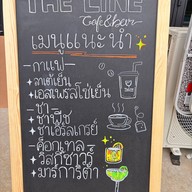 THE LINE
Cafe & bar
เมนูแนะนำ
-กาแฟ-
ลาเต้เย็น
เอสเพรสโซ่เย็น
-ชา-
ชาพีช
ชาเอิร์ลเกรย์
-ค็อกเทล-
วิสกี้ซาวร์
มาร์การิต้า